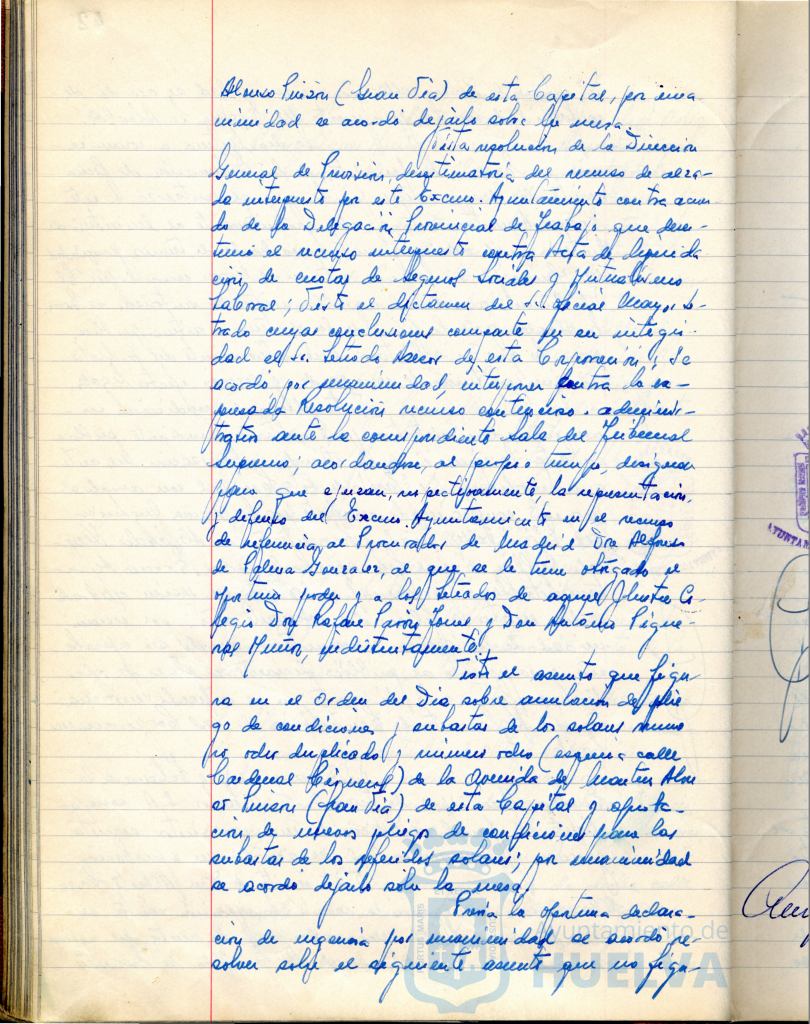 Alonso Pinzón (Gran Vía) de esta Capital, por una
nimidad se acordó dejarlo sobre la mesa.
Vista resolución de la Dirección
General de Previsión, desestimatoria del recurso de alza-
da interpuesto por este Excmo. Ayuntamiento contra acuer
do de la Delegación Provincial de Trabajo, que deses-
timó el recurso interpuesto contra Acta de liquida
ción de cuotas de Seguros Sociales y Mutualismo
Laboral; Visto el dictamen del Sr. Oficial Mayor Le-
trado cuyas conclusiones comparte en su integri-
dad el Sr. Letrado Asesor de esta Corporación; Se
acordó por unanimidad, interponer contra la ex-
presada Resolución recurso contencioso-adminis-
trativo ante la correspondiente Sala del Tribunal
Supremo; acordándose, al propio tiempo, designar
para que ejerzan, respectivamente, la representación
y defensa del Excmo. Ayuntamiento en el recurso
de referencia, al Procurador de Madrid Don Alfonso
de Palma González, al que se le tiene otorgado el
oportuno poder y a los Letrados de aquel Ilustre Co-
legio Don Rafael y Don Antonio
Muñoz, indistintamente.
Visto el asunto que figu-
ra en el Orden del Día sobre anulación de plie
go de condiciones y subastas de los solares núme
ro ocho duplicado y número ocho (esquina calle
Cardenal Cisneros) de la Avenida de Martín Alon
so Pinzón (Gran Vía) de esta Capital y aproba-
ción de nuevos pliegos de condiciones para las
subastas de los referidos solares; por unanimidad
se acordó dejarlo sobre la mesa.
Previa la oportuna declara-
ción de urgencia por unanimidad se acordó re-
solver sobre el siguiente asunto que no figu-
Ayuntamiento de
HUELVA